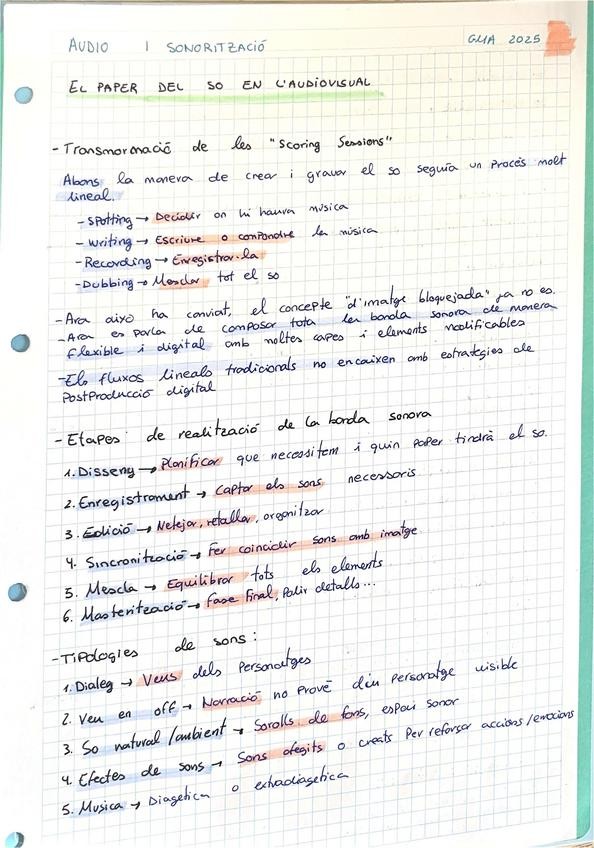 AUDIO I SONORITZACIÓ
GMA 2025
EL PAPER DEL SO EN L'AUDIOVISUAL
- Transmormació de les "Scoring Sessions"
Abans la manera de crear i gravar el so seguia un procés molt
lineal.
- SPotting → Decidir on hi haura música
- Writing → Escriure o compondre la música
- Recording → Enregistrar-la
- Dubbing → Mesclar tot el so
- Ara això ha canviat, el concepte "d'imatge bloquejada" ja no es.
- Ara es parla de composar tota la banda sonora de manera
flexible i digital amb moltes capes i elements modificables
- Els fluxos lineals tradicionals no encaixen amb estrategies de
PostProducció digital
- Etapes de realització de la banda sonora
1. Disseny → Planificar que necessitem i quin paper tindrà el so.
2. Enregistrament → Captar els sons necessaris
3. Edició → Netejar, retallar, organitzar
4. Sincronització → Fer coincidir sons amb imatge
5. Mescla → Equilibrar tots els elements
6. Masterització → Fase final, Polir detalls...
- Tipologies de sons:
1. Dialeg → Veus dels Personatges
2. Veu en off → Narració no prové d'un personatge visible
3. So natural /ambient → Sorolls de fons, espai sonor
4. Efectes de sons → Sons afegits o creats Per reforçar accions/emocions
5. Musica → Diagetica o extradiagetica